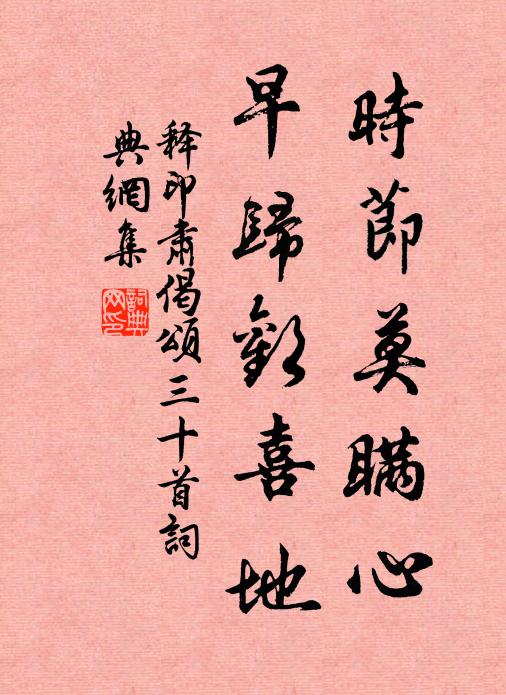 時節莫瞞心
早歸歡喜地
释印肃偈頌三十首詞
典網集
詞典網印